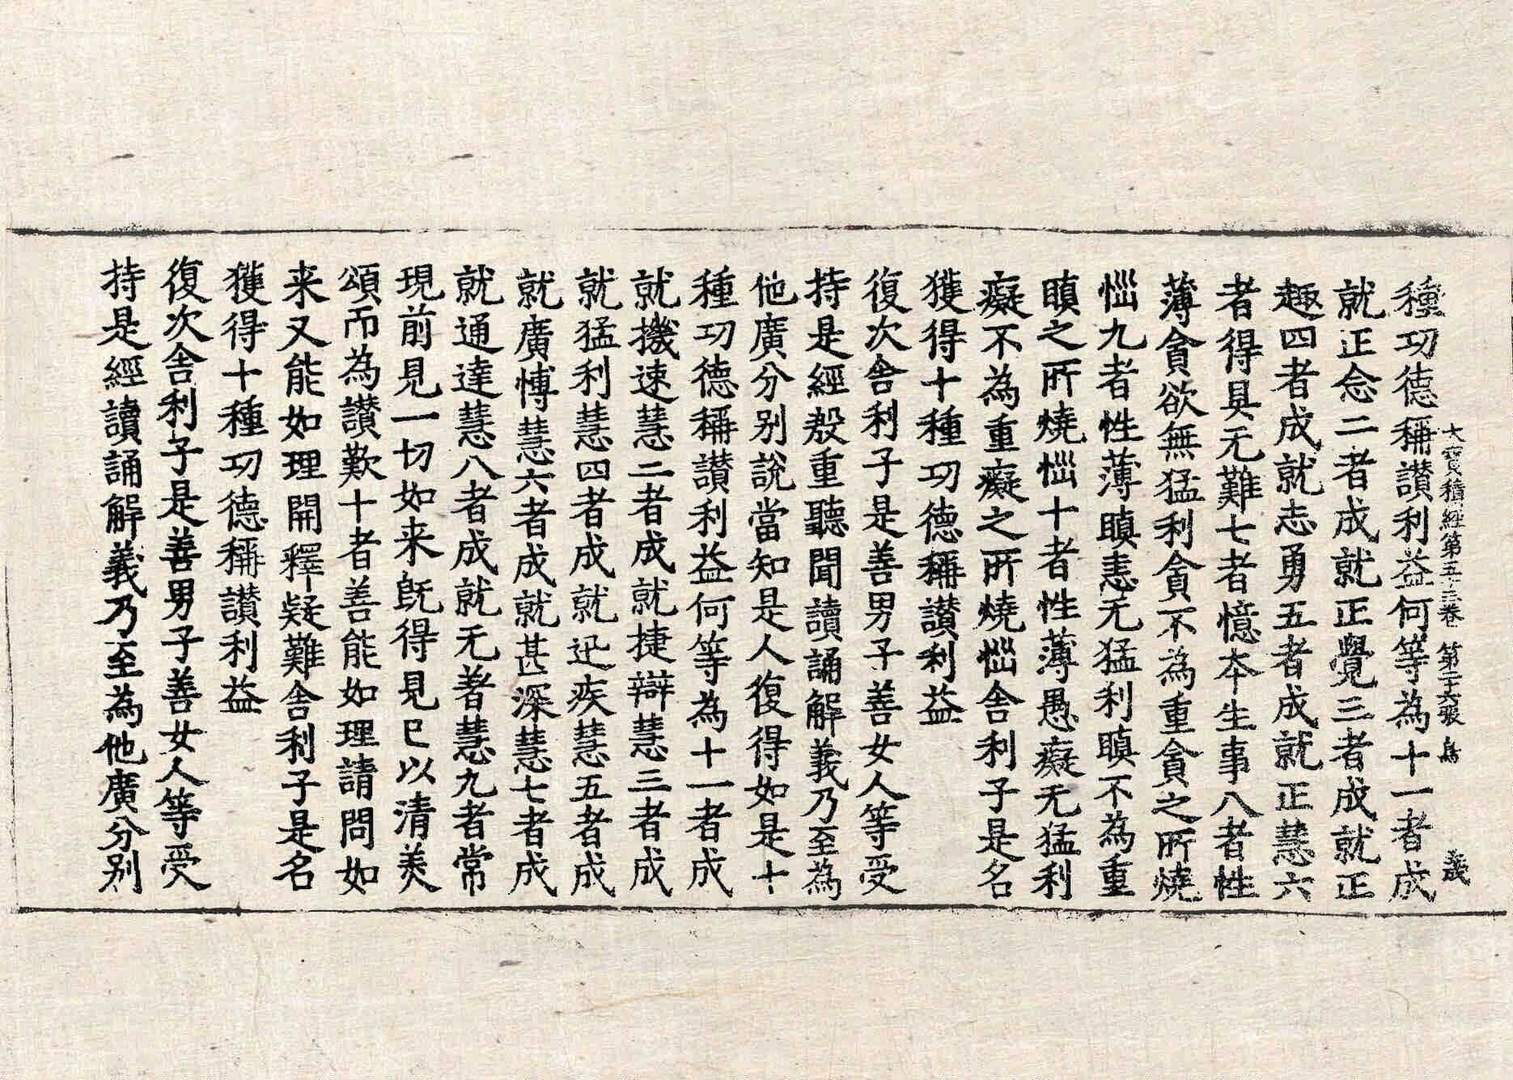 大寶積經第五十三卷 第二十六張 鳥 義成
種功德稱讃利益何等為十一者成
就正念二者成就正覺三者成就正
趣四者成就志勇五者成就正慧六
者得具无難七者憶本生事八者性
薄貪欲無猛利貪不為重貪之所燒
惱九者性薄瞋恚无猛利瞋不為重
瞋之所燒惱十者性薄愚癡无猛利
癡不為重癡之所燒惱舍利子是名
獲得十種功德稱讃利益
復次舍利子是善男子善女人等受
持是經殷重聽聞讀誦解義乃至為
他廣分别說當知是人復得如是十
種功德稱讃利益何等為十一者成
就機速慧二者成就捷辯慧三者成
就猛利慧四者成就迅疾慧五者成
就廣愽慧六者成就甚深慧七者成
就通達慧八者成就无著慧九者常
現前見一切如来既得見已以清美
頌而為讃歎十者善能如理請問如
来又能如理開釋疑難舍利子是名
獲得十種功德稱讃利益
復次舍利子是善男子善女人等受
持是經讀誦解義乃至為他廣分别